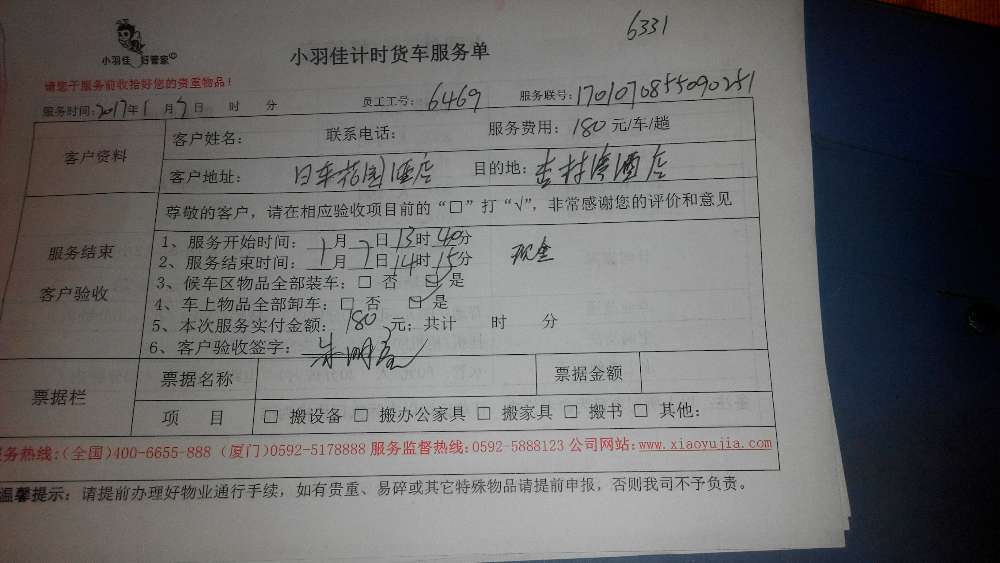 6331
小羽佳 好管家
小羽佳计时货车服务单
请您于服务前收拾好您的贵重物品！
服务时间：2017年1月7日 时 分 员工工号：6469 服务联号：1701070855090251
客户资料
客户姓名： 联系电话： 服务费用：180元/车/趟
客户地址： 日华花园酒店 目的地：杏林湾酒店
尊敬的客户，请在相应验收项目前的“□”打“√”，非常感谢您的评价和意见
服务结束
客户验收
1、服务开始时间：1月7日13时40分
2、服务结束时间：1月7日14时15分 现金
3、候车区物品全部装车：□ 否 ☑ 是
4、车上物品全部卸车：□ 否 ☑ 是
5、本次服务实付金额：180元；共计 时 分
6、客户验收签字：朱明
票据栏
票据名称 票据金额
项 目 □ 搬设备 □ 搬办公家具 □ 搬家具 □ 搬书 □ 其他：
务热线：(全国)400-6655-888 (厦门)0592-5178888 服务监督热线：0592-5888123 公司网站：www.xiaoyujia.com
温馨提示：请提前办理好物业通行手续，如有贵重、易碎或其它特殊物品请提前申报，否则我司不予负责。